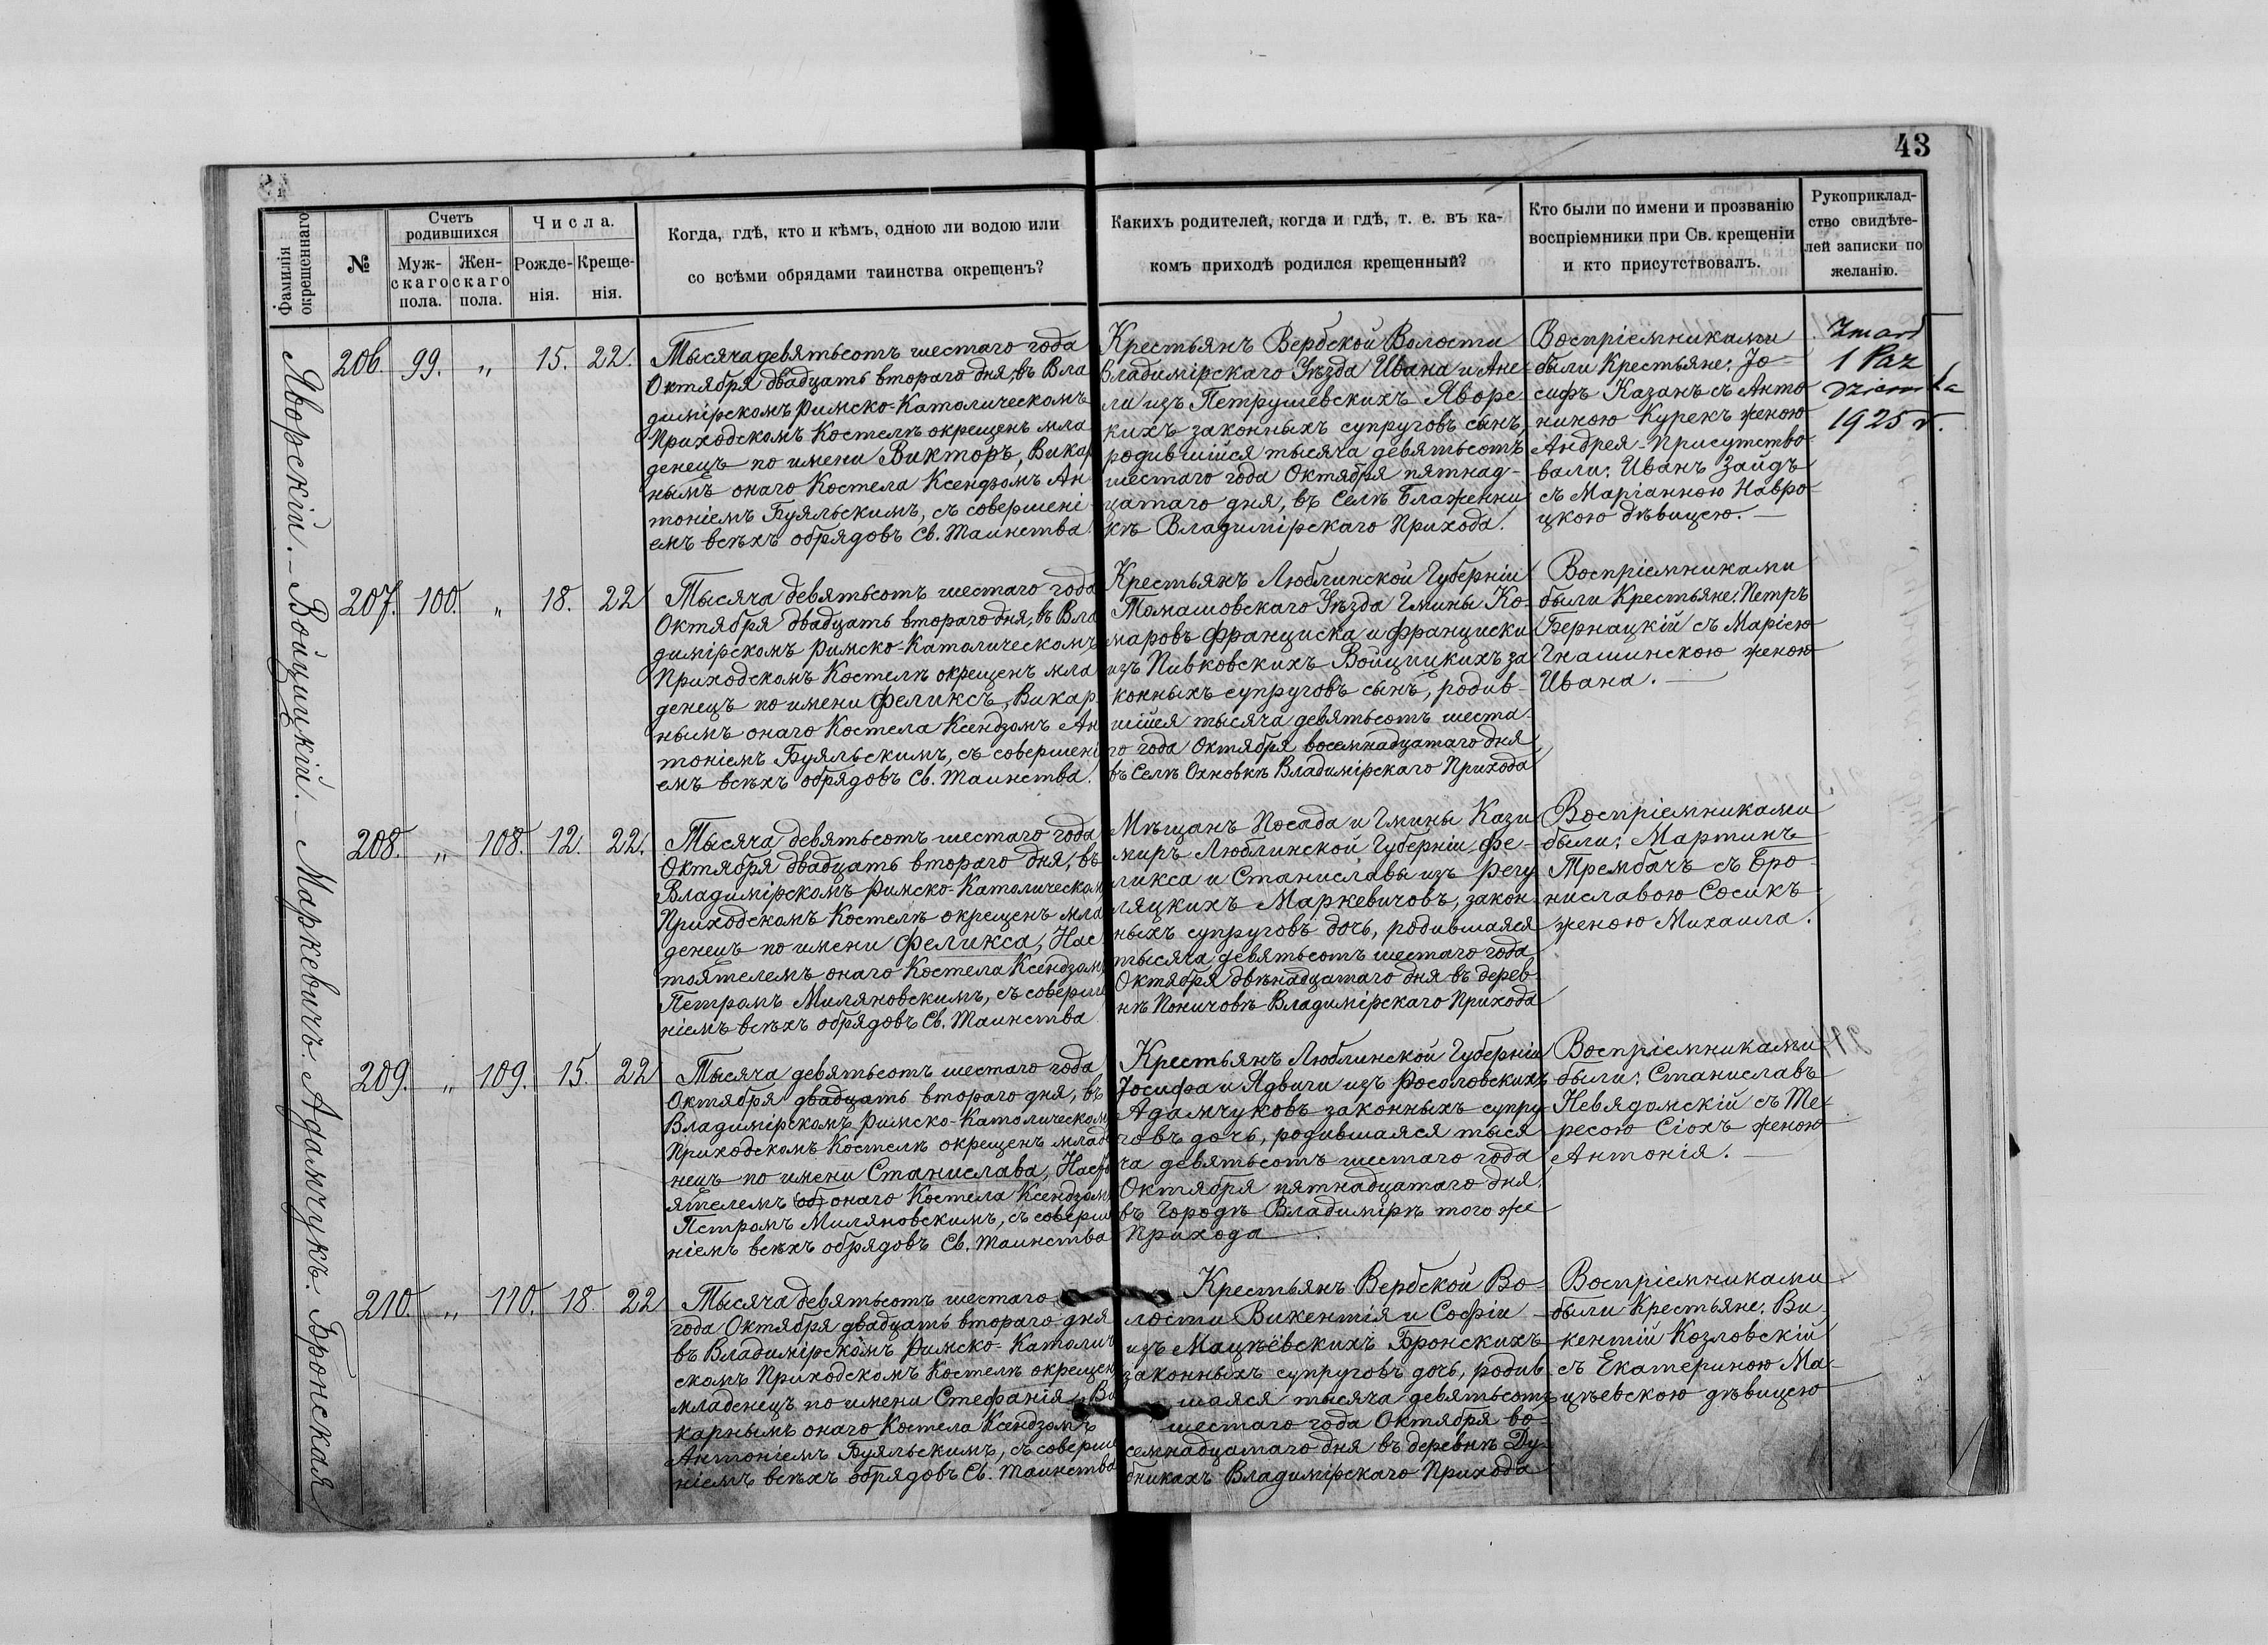 43
Фамилія окрещеннаго.
№
Счетъ родившихся
Муж-
скаго
пола.
Жен-
скаго
пола.
Числа.
Рожде-
нія.
Креще-
нія.
Когда, гдѣ, кто и кѣмъ, одною ли водою или
со всѣми обрядами таинства окрещенъ?
Какихъ родителей, когда и гдѣ, т. е. въ ка-
комъ приходѣ родился крещенный?
Кто были по имени и прозванію
воспріемники при Св. крещеніи
и кто присутствовалъ.
Рукоприклад-
ство свидѣте-
лей записки по
желанію.
Яворскій. – Войцицкій. – Маркевичъ. Адамчукъ. Бронская
206. 99. „ 15. 22.
Тысяча девятьсотъ шестаго года
Октября двадцать втораго дня, въ Вла
димірскомъ Римско-Католическомъ
Приходскомъ Костелѣ окрещенъ мла
денецъ по имени Викторъ, Викар
нымъ онаго Костела Ксендзомъ Ан
тоніемъ Буяльскимъ, съ совершені
емъ всѣхъ обрядовъ Св. Таинства.
Крестьянъ Вербской Волости
Владимірскаго Уѣзда Ивана и Ане
ли изъ Петрушевскихъ Яворс
кихъ законныхъ супруговъ сынъ,
родившійся тысяча девятьсотъ
шестаго года Октября пятнад-
цатаго дня, въ Селѣ Блаженни
кѣ Владимірскаго Прихода.
Воспріемниками
были Крестьяне: Іо-
сифъ Казанъ съ Анто
ниною Курекъ женою
Андрея - Присутство
вали: Иванъ Зайдъ
съ Маріанною Навро
цкою дѣвицею. –
Zmarł
1 Paz
dziernika
1925 r.
207. 100. „ 18. 22
Тысяча девятьсотъ шестаго года
Октября двадцать втораго дня, въ Вла
димірскомъ Римско-Католическомъ
Приходскомъ Костелѣ окрещенъ мла
денецъ по имени Феликсъ, Викар
нымъ онаго Костела Ксендзомъ Ан
тоніемъ Буяльскимъ, съ совершені
емъ всѣхъ обрядовъ Св. Таинства.
Крестьянъ Люблинской Губерніи
Томашовскаго Уѣзда Гмины Ко-
маровъ Франциска и Франциски
изъ Пивковскихъ Войцицкихъ за
конныхъ супруговъ сынъ, родив-
шійся тысяча девятьсотъ шеста
го года Октября восемнадцатаго дня
въ Селѣ Охновкѣ Владимірскаго Прихода
Воспріемниками
были Крестьяне: Петръ
Бернацкій съ Маріею
Гнашинскою женою
Ивана. –
208. „ 108. 12. 22.
Тысяча девятьсотъ шестаго года
Октября двадцать втораго дня, въ
Владимірскомъ Римско-Католическом
Приходскомъ Костелѣ окрещенъ мла
денецъ по имени Феликса, Нас
тоятелемъ онаго Костела Ксендзом
Петромъ Миляновскимъ, съ соверше
ніемъ всѣхъ обрядовъ Св. Таинства
Мѣщанъ Посада и Гмины Кази
миръ Люблинской Губерніи Фе-
ликса и Станиславы изъ Регу
ляцкихъ Маркевичовъ, закон
ныхъ супруговъ дочь, родившаяся
тысяча девятьсотъ шестаго года
Октября двѣнадцатаго дня въ дерев
нѣ Поничовѣ Владимірскаго Прихода
Воспріемниками
были: Мартинъ
Трембачъ съ Бро-
ниславою Сосикъ
женою Михаила.
209. „ 109. 15. 22
Тысяча девятьсотъ шестаго года
Октября двадцать втораго дня, въ
Владимірскомъ Римско-Католическом
Приходскомъ Костелѣ окрещенъ младе
нецъ по имени Станислава, Насто
ятелемъ онаго Костела Ксендзом
Петромъ Миляновскимъ, съ соверше
ніемъ всѣхъ обрядовъ Св. Таинства
Крестьянъ Люблинской Губерніи
Іосифа и Ядвиги изъ Росоловскихъ
Адамчуковъ законныхъ супру
говъ дочь, родившаяся тыся
ча девятьсотъ шестаго года
Октября пятнадцатаго дня
въ Городѣ Владимірѣ того же
Прихода.
Воспріемниками
были: Станиславъ
Невядомскій съ Те-
ресою Сіохъ женою
Антонія. –
210. „ 110. 18. 22
Тысяча девятьсотъ шестаго
года Октября двадцать втораго дня
въ Владимірскомъ Римско-Католич
скомъ Приходскомъ Костелѣ окрещен
младенецъ по имени Стефанія, Ви
карнымъ онаго Костела Ксендзомъ
Антоніемъ Буяльскимъ, съ соверше
ніемъ всѣхъ обрядовъ Св. Таинства
Крестьянъ Вербской Во-
лости Викентія и Софіи
изъ Мацѣевскихъ Бронскихъ
законныхъ супруговъ дочь, родив
шаяся тысяча девятьсотъ
шестаго года Октября во-
семнадцатаго дня въ деревнѣ Ду-
бникахъ Владимірскаго Прихода
Воспріемниками
были Крестьяне: Ви-
кентій Козловскій
съ Екатериною Ма-
цѣевскою дѣвицею